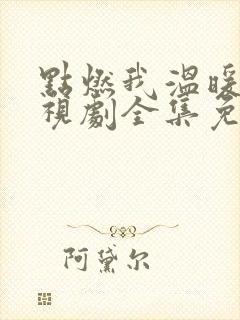 點燃我溫暖
視劇全集免
阿黛尔